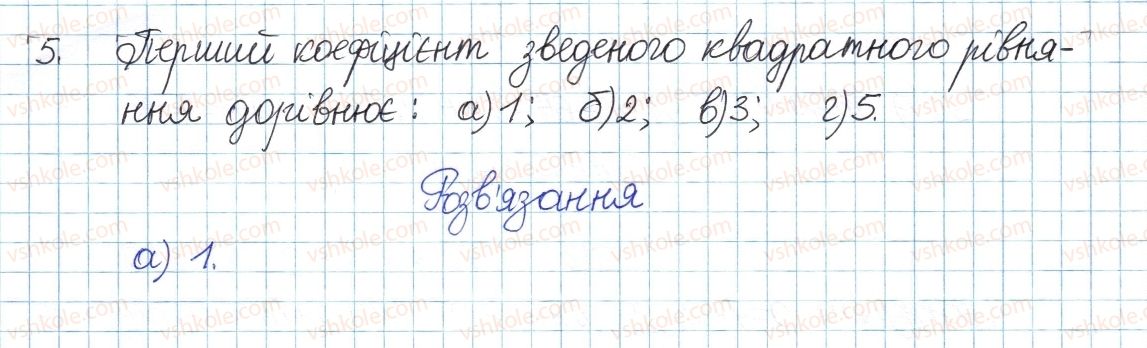 5. Перший коефіцієнт зведеного квадратного рівня-
ння дорівнює: а) 1; б) 2; в) 3; г) 5.
Розв'язання
а) 1.